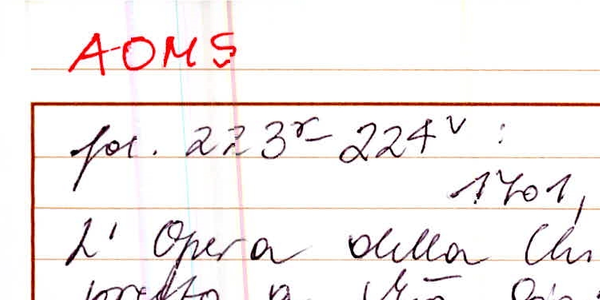 AOMS
fol. 223r- 224v :
1701,
L' Opera della Chi